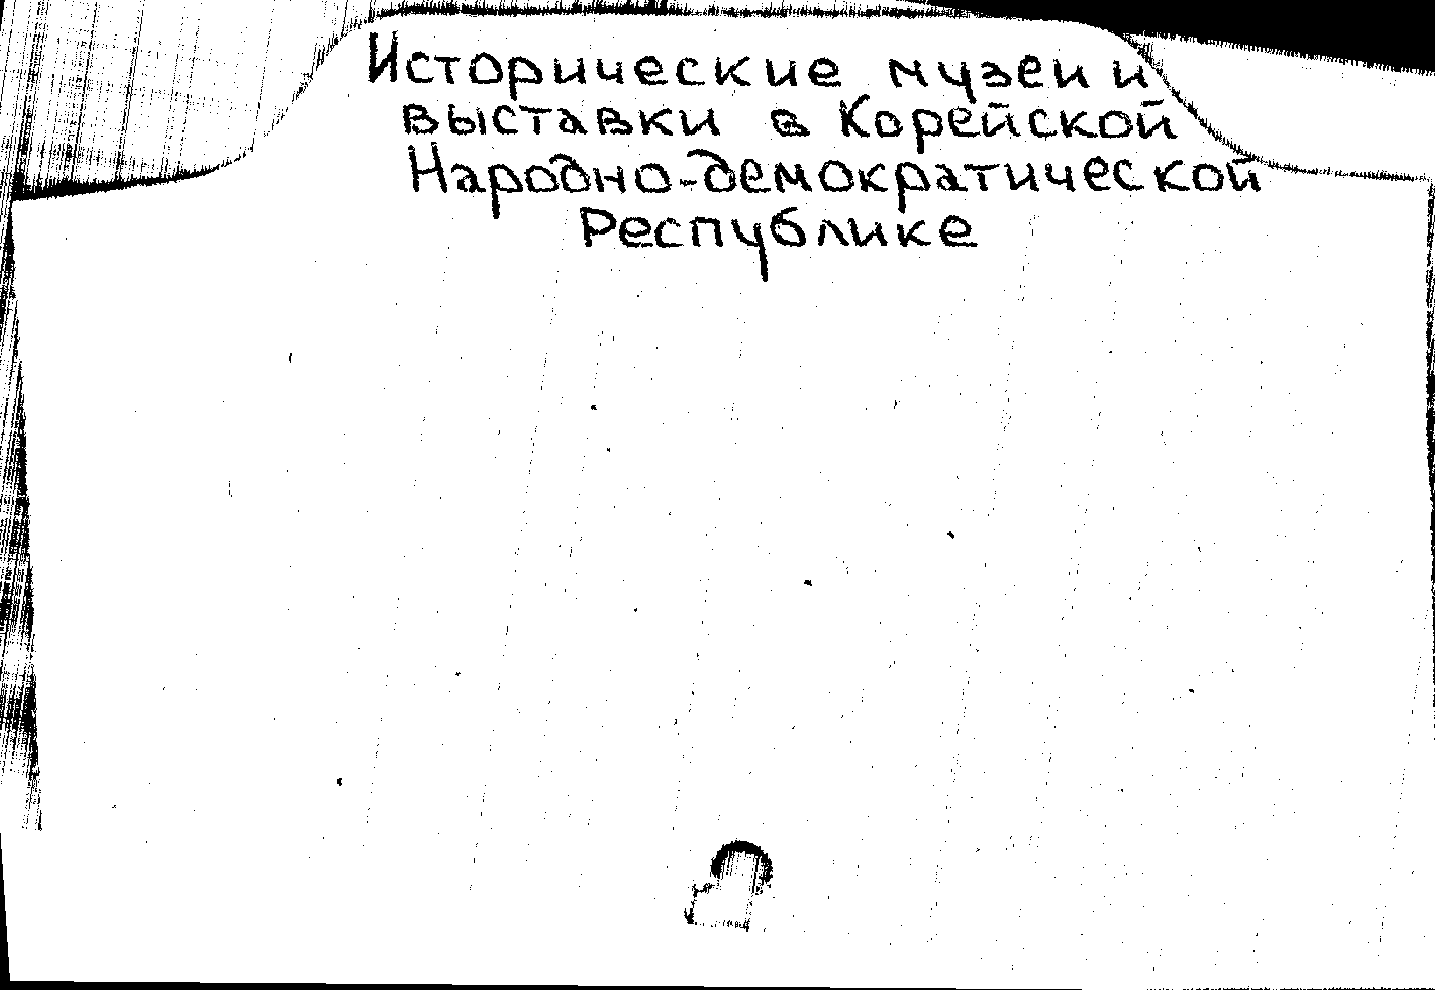 Исторические музеи и
выставки в Корейской
Народно-демократической
Республике